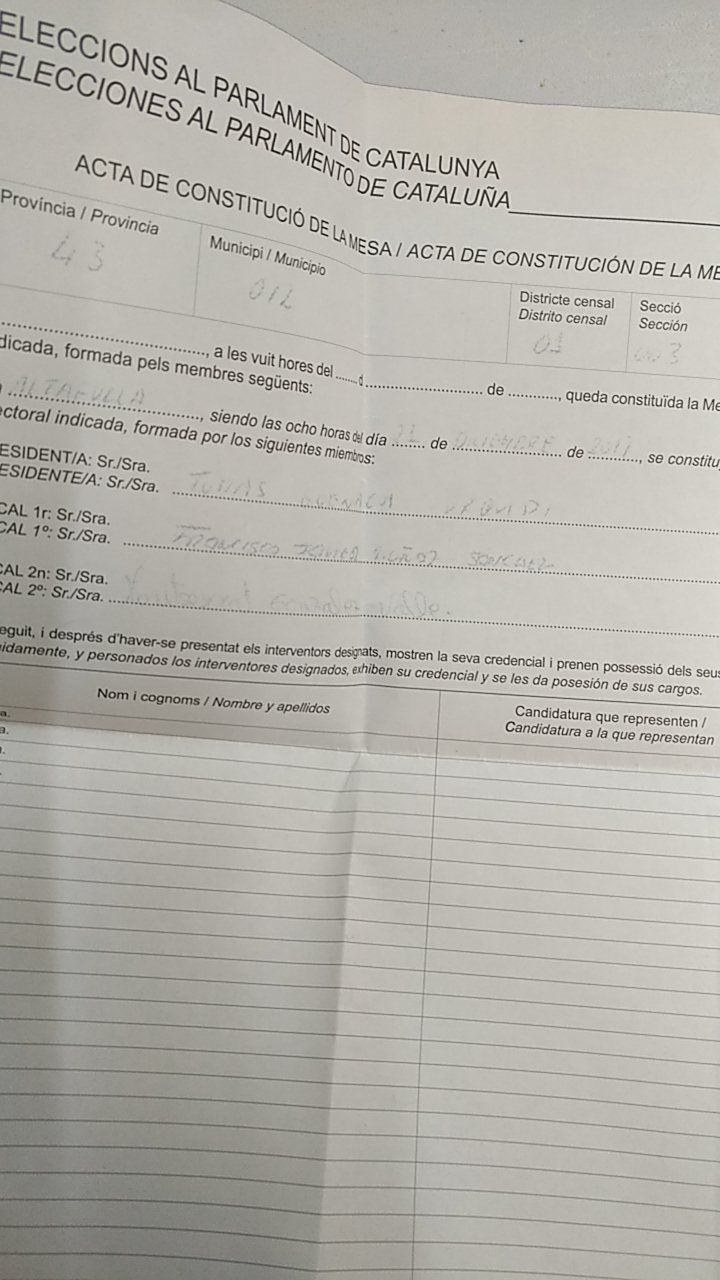 ELECCIONS AL PARLAMENT DE CATALUNYA
ELECCIONES AL PARLAMENTO DE CATALUÑA
ACTA DE CONSTITUCIÓ DE LA MESA / ACTA DE CONSTITUCIÓN DE LA ME
Província / Provincia
43
Municipi / Municipio
012
Districte censal
Distrito censal
01
Secció
Sección
003
, a les vuit hores del ........ d ............................ de ............, queda constituïda la Me
dicada, formada pels membres següents:
ALTAFULLA, siendo las ocho horas del día 21 de DICIEMBRE de 2017, se constitu
ectoral indicada, formada por los siguientes miembros:
ESIDENT/A: Sr./Sra.
ESIDENTE/A: Sr./Sra. TOMAS
CAL 1r: Sr./Sra.
CAL 1º: Sr./Sra. FRANCISCO JAVIER SANCHEZ
CAL 2n: Sr./Sra.
CAL 2º: Sr./Sra.
eguit, i després d'haver-se presentat els interventors designats, mostren la seva credencial i prenen possessió dels seus
uidamente, y personados los interventores designados, exhiben su credencial y se les da posesión de sus cargos.
Nom i cognoms / Nombre y apellidos
Candidatura que representen /
Candidatura a la que representan
a.
a.